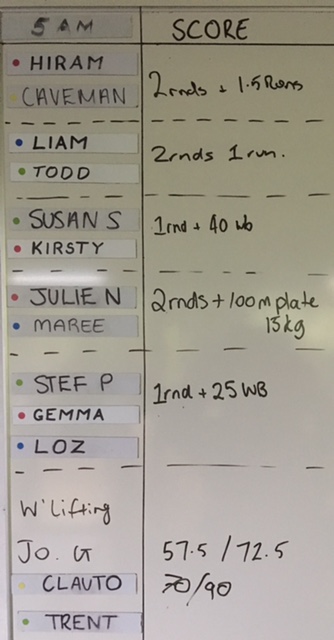 5 AM SCORE
HIRAM
CAVEMAN
2rnds + 1.5 Runs
LIAM
TODD
2rnds 1 run.
SUSAN S
KIRSTY
1rnd + 40 wb
JULIE N
MAREE
2rnds + 100m plate
15kg
STEF P
GEMMA
LOZ
1rnd + 25 WB
W'Lifting
Jo. G 57.5 / 72.5
CLAUTO 70/90
TRENT